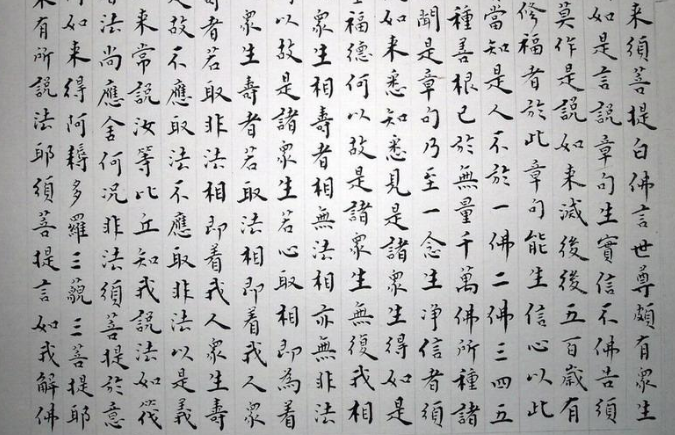 来須菩提白佛言世尊頗有衆生
如是言説章句生實信不佛告須
莫作是説如来滅後後五百歳有
修福者於此章句能生信心以此
當知是人不於一佛二佛三四五
種善根已於無量千萬佛所種諸
聞是章句乃至一念生浄信者須
如来悉知悉見是諸衆生得如是
福德何以故是諸衆生無復我相
衆生相壽者相無法相亦無非法
以故是諸衆生若心取相即為着
衆生壽者若取法相即着我人衆
者若取非法相即着我人衆生壽
故不應取法不應取非法以是義
来常説汝等比丘知我説法如筏
法尚應舍何況非法須菩提於意
如来得阿耨多羅三藐三菩提耶
来有所説法耶須菩提言如我解佛